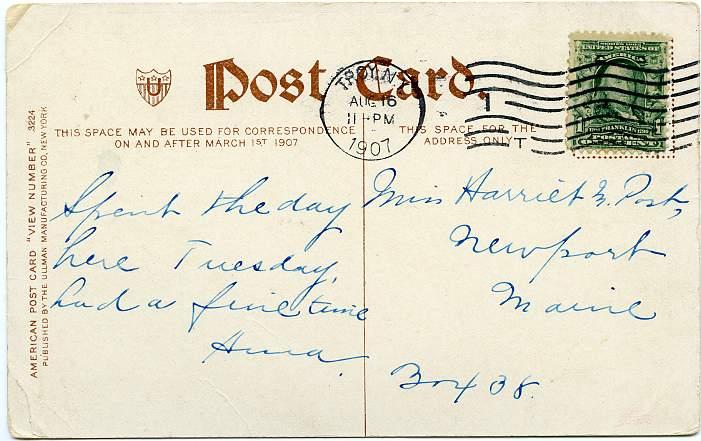 Post Card.
TROY, N.Y.
AUG 16
11-PM
1907
1
T
UNITED STATES OF
AMERICA
THIS SPACE MAY BE USED FOR CORRESPONDENCE
ON AND AFTER MARCH 1ST 1907
THIS SPACE FOR THE
ADDRESS ONLY
AMERICAN POST CARD "VIEW NUMBER" 3224
PUBLISHED BY THE ULLMAN MANUFACTURING CO., NEW YORK
Spent the day
here Tuesday,
had a fine time
Miss Harriet Post,
Newport
Maine
Box 38.